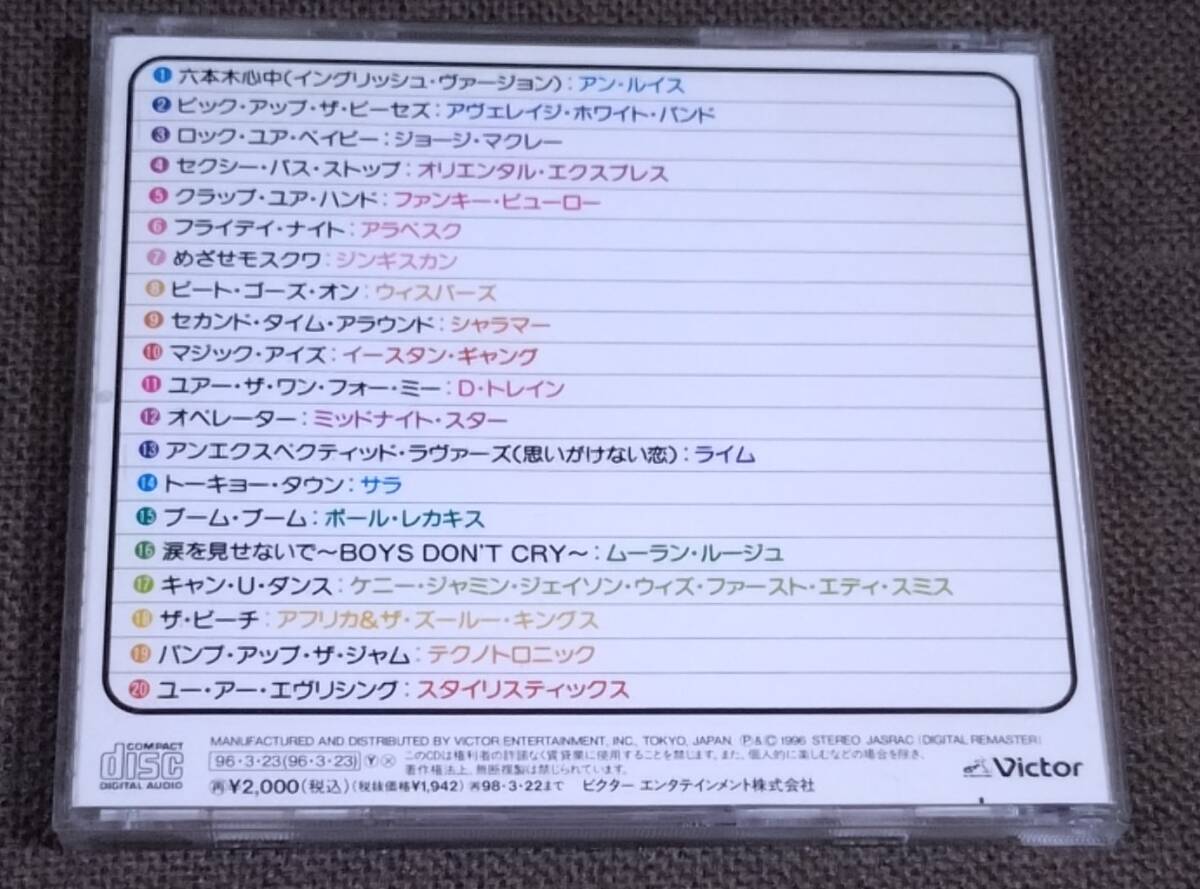 1 六本木心中(イングリッシュ・ヴァージョン):アン・ルイス
2 ピック・アップ・ザ・ピーセズ:アヴェレイジ・ホワイト・バンド
3 ロック・ユア・ベイビー:ジョージ・マクレー
4 セクシー・バス・ストップ:オリエンタル・エクスプレス
5 クラップ・ユア・ハンド:ファンキー・ビューロー
6 フライデイ・ナイト:アラベスク
7 めざせモスクワ:ジンギスカン
8 ビート・ゴーズ・オン:ウィスパーズ
9 セカンド・タイム・アラウンド:シャラマー
10 マジック・アイズ:イースタン・ギャング
11 ユアー・ザ・ワン・フォー・ミー:D・トレイン
12 オペレーター:ミッドナイト・スター
13 アンエクスペクティッド・ラヴァーズ(思いがけない恋):ライム
14 トーキョー・タウン:サラ
15 ブーム・ブーム:ポール・レカキス
16 涙を見せないで〜BOYS DON'T CRY〜:ムーラン・ルージュ
17 キャン・U・ダンス:ケニー・ジャミン・ジェイソン・ウィズ・ファースト・エディ・スミス
18 ザ・ビーチ:アフリカ&ザ・ズールー・キングス
19 パンプ・アップ・ザ・ジャム:テクノトロニック
20 ユー・アー・エヴリシング:スタイリスティックス
COMPACT disc DIGITAL AUDIO
MANUFACTURED AND DISTRIBUTED BY VICTOR ENTERTAINMENT, INC., TOKYO, JAPAN. ℗&© 1996 STEREO JASRAC (DIGITAL REMASTER)
96・3・23(96・3・23) Ⓨ Ⓧ このCDは権利者の許諾なく賃貸業に使用することを禁じます。また、個人的に楽しむなどの場合を除き、
著作権法上、無断複製は禁じられています。
再¥2,000(税込)(税抜価格¥1,942) 再98・3・22まで ビクター エンタテインメント株式会社
Victor